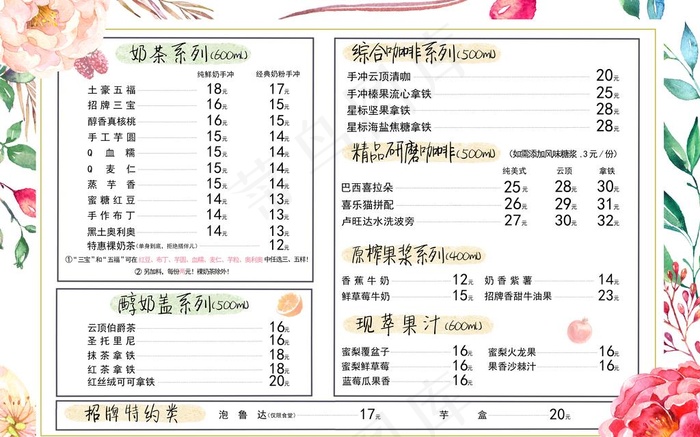 奶茶系列(600ml)
纯鲜奶手冲 经典奶粉手冲
土豪五福 18元 17元
招牌三宝 16元 15元
醇香真核桃 16元 15元
手工芋圆 15元 14元
Q血糯 15元 14元
Q麦仁 15元 14元
蒸芋香 15元 14元
蜜糖红豆 14元 13元
手作布丁 14元 13元
黑土奥利奥 14元 13元
特惠裸奶茶(单身到底，拒绝搭伴儿) 12元
①“三宝”和“五福”可在红豆、布丁、芋圆、血糯、麦仁、芋粒、奥利奥中任选三、五样！
② 另加料，每份 元！裸奶茶除外！
醇奶盖系列(500ml)
云顶伯爵茶 16元
圣托里尼 16元
抹茶拿铁 18元
红茶拿铁 18元
红丝绒可可拿铁 20元
综合咖啡系列(500ml)
手冲云顶清咖 20元
手冲榛果流心拿铁 25元
星标坚果拿铁 28元
星标海盐焦糖拿铁 28元
精品研磨咖啡(500ml) (如需添加风味糖浆.3元/份)
纯美式 云顶 拿铁
巴西喜拉朵 25元 28元 30元
喜乐猫拼配 26元 29元 31元
卢旺达水洗波旁 27元 30元 32元
原榨果浆系列(400ml)
香蕉牛奶 12元 奶香紫薯 14元
鲜草莓牛奶 15元 招牌香甜牛油果 23元
现萃果汁(600ml)
蜜梨覆盆子 16元 蜜梨火龙果 16元
蜜梨鲜草莓 16元 果香沙棘汁 16元
蓝莓瓜果香 16元
招牌特约类 泡鲁达(仅限食堂) 17元 芋盒 20元